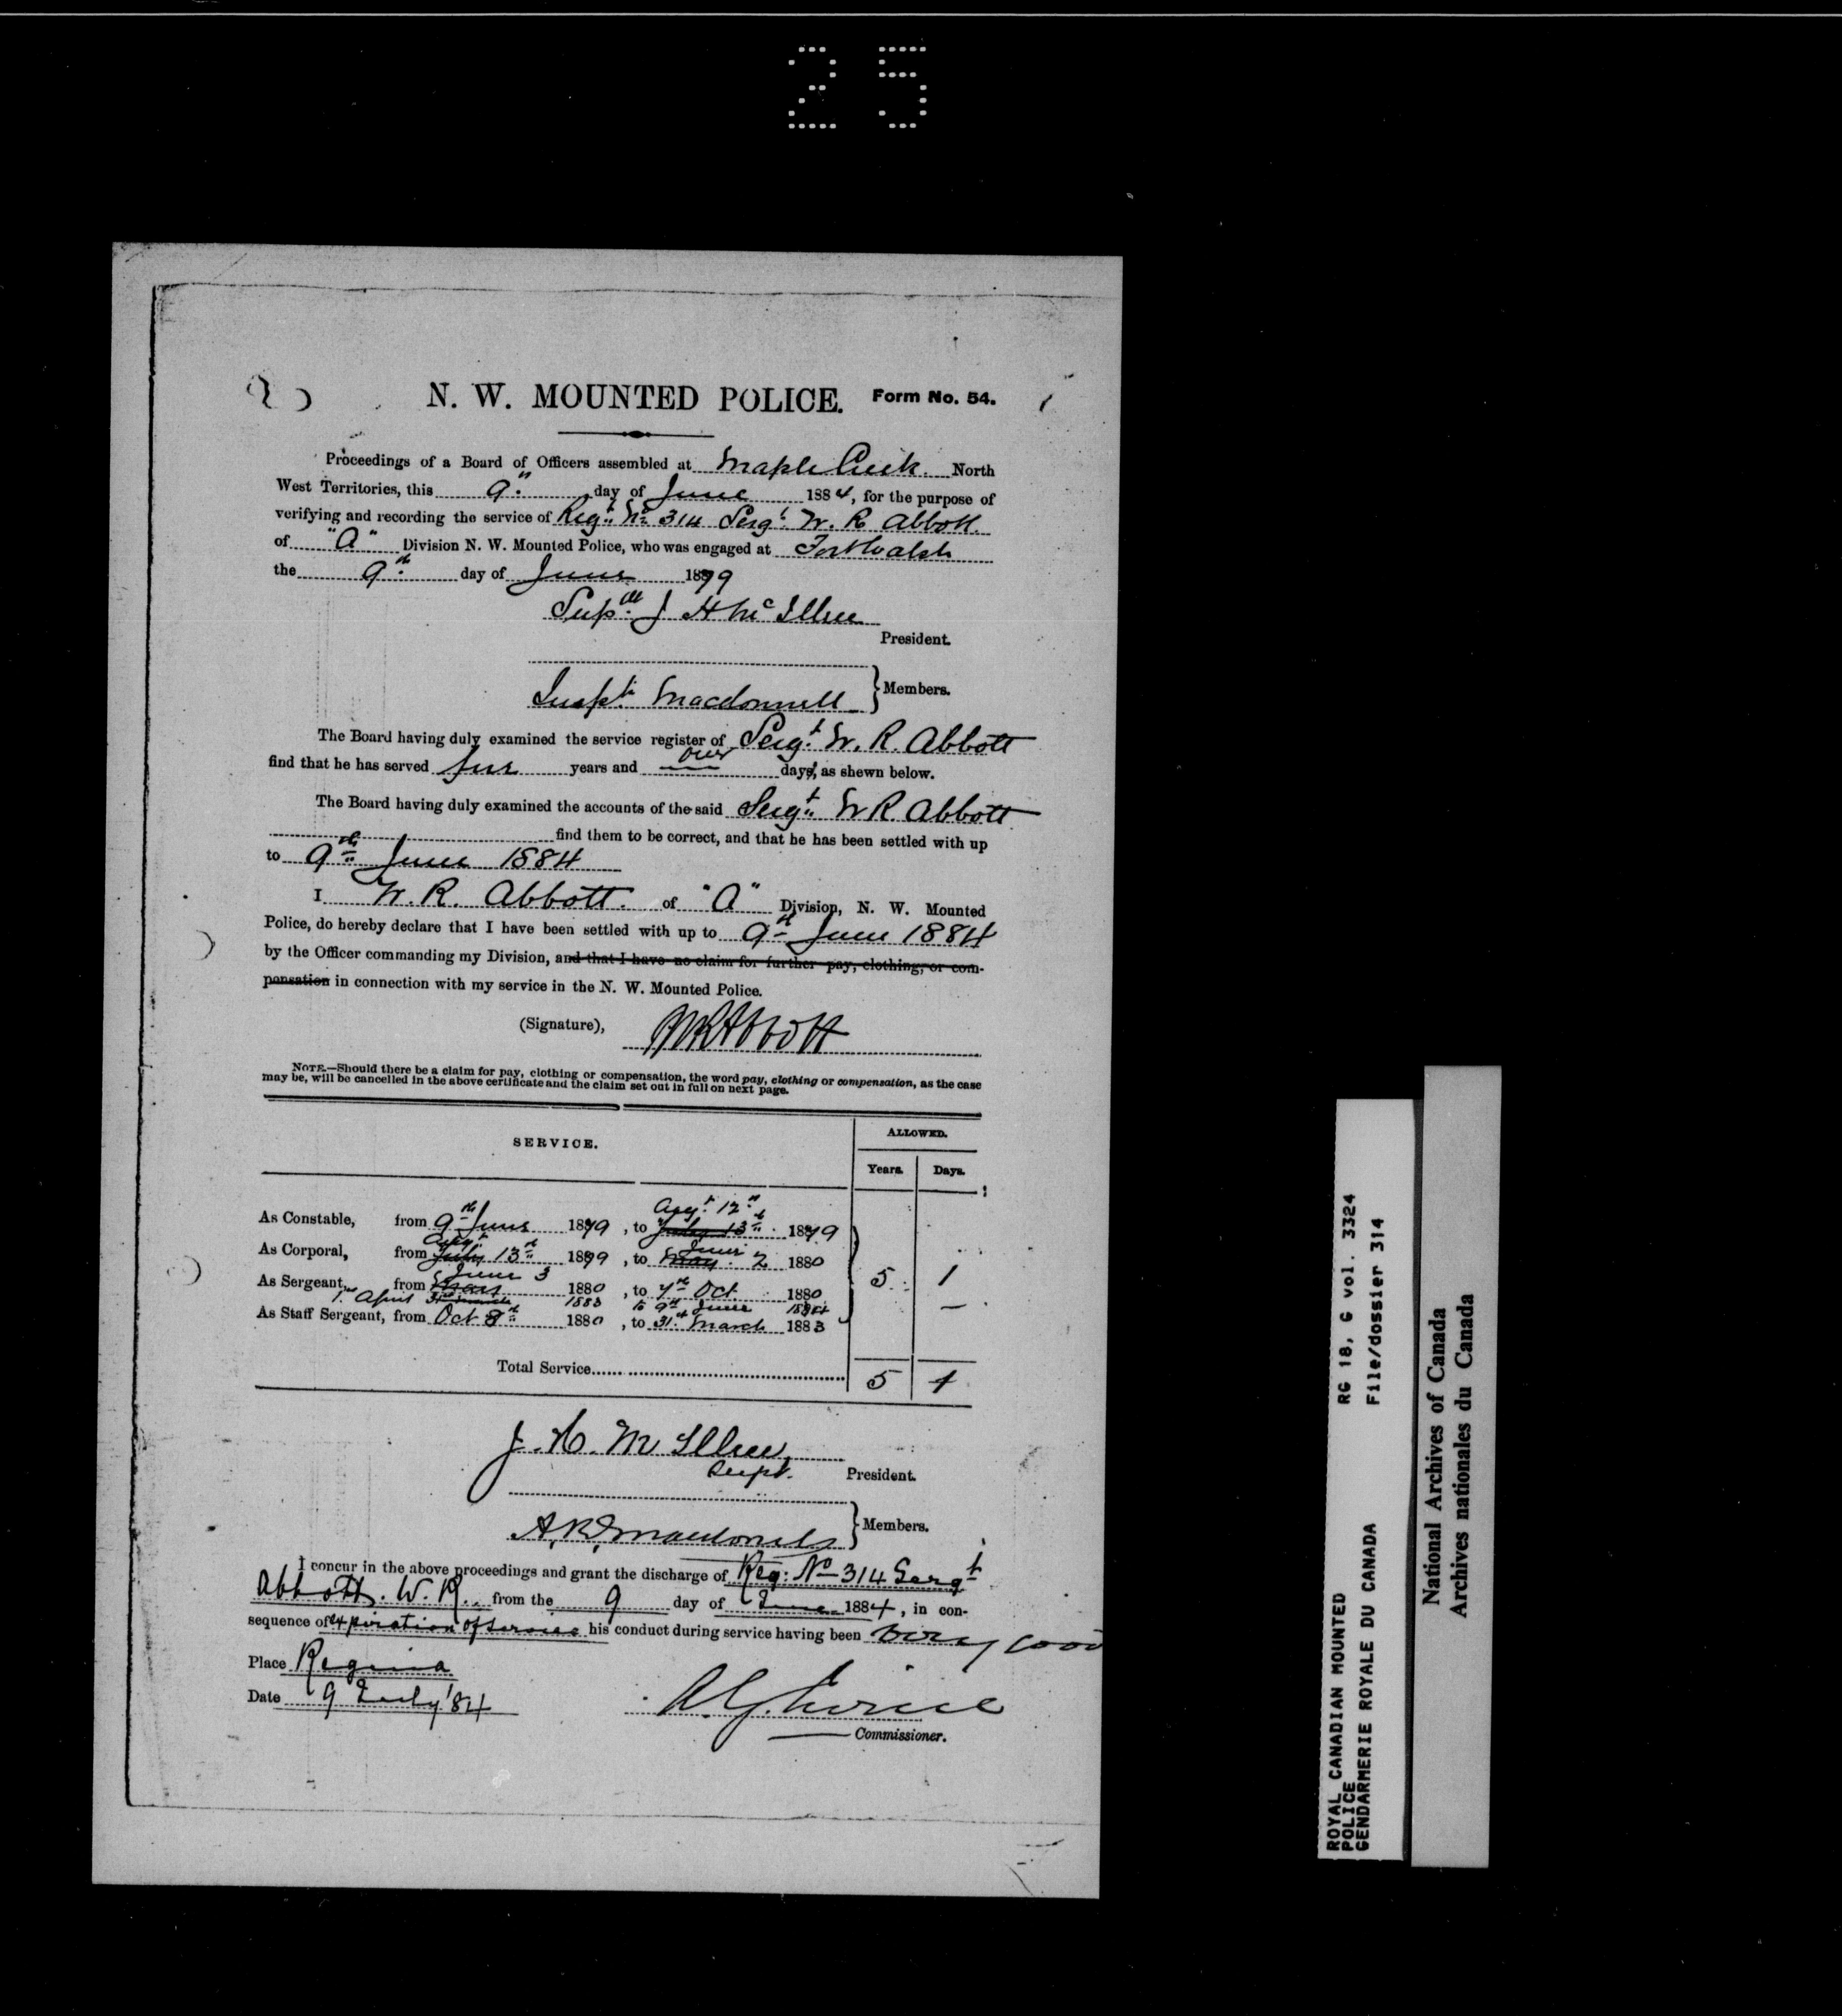 25
N. W. MOUNTED POLICE. Form No. 54.
Proceedings of a Board of Officers assembled at Maple Creek. North
West Territories, this 9th day of June 1884, for the purpose of
verifying and recording the service of Regtl No 314 Sergt W. R. Abbott
of "A" Division N. W. Mounted Police, who was engaged at Fort Walsh
the 9th day of June 1879
Supdt J H McIllree
President.
Inspt Macdonnell
} Members.
The Board having duly examined the service register of Sergt W. R. Abbott
find that he has served five years and one days, as shewn below.
The Board having duly examined the accounts of the said Sergt W R Abbott
find them to be correct, and that he has been settled with up
to 9th June 1884
I W. R. Abbott. of "A" Division, N. W. Mounted
Police, do hereby declare that I have been settled with up to 9th June 1884
by the Officer commanding my Division, and that I have no claim for further pay, clothing, or com-
pensation in connection with my service in the N. W. Mounted Police.
(Signature), WRAbbott
NOTE.—Should there be a claim for pay, clothing or compensation, the word pay, clothing or compensation, as the case
may be, will be cancelled in the above certificate and the claim set out in full on next page.
SERVICE. ALLOWED.
Years. Days.
Augt 12th
As Constable, from 9th June 1879, to July 13th 1879
Augt June
As Corporal, from July 13th 1879, to May 2 1880
June 3
As Sergeant, from 1880, to 7th Oct. 1880 5 1
1st April 31st March 1883 to 9th June 1884 —
As Staff Sergeant, from Oct 8th 1880, to 31st March 1883
Total Service 5 1
J. H. McIllree
Supt. President.
A.R. Macdonell
} Members.
I concur in the above proceedings and grant the discharge of Reg: No 314 Sergt
Abbott. W. R. from the 9 day of June 1884, in con-
sequence of expiration of service his conduct during service having been very good
Place Regina
Date 9 July '84
A. G. Irvine
Commissioner.
ROYAL CANADIAN MOUNTED RG 18, G vol. 3324
POLICE
GENDARMERIE ROYALE DU CANADA File/dossier 314
National Archives of Canada
Archives nationales du Canada